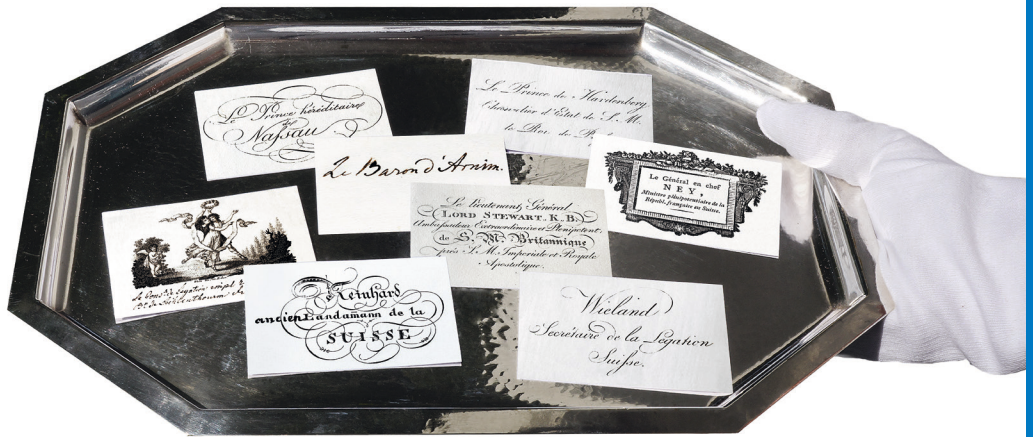 Le Prince héréditaire
de
Nassau
Le Prince de Hardenberg
Chancelier d'Etat de S. M.
le Roi de
Le Baron d'Arnim.
Le Général en chef
NEY,
Ministre plénipotentiaire de la
Républ. française en Suisse.
Le Lieutenant Général
LORD STEWART, K. B.
Ambassadeur Extraordinaire et Plenipotent.
de S. M. Britannique
près S. M. Imperiale et Royale
Apostolique.
Reinhard
ancien Landamann de la
SUISSE
Wieland
Secrétaire de la Légation
Suisse.